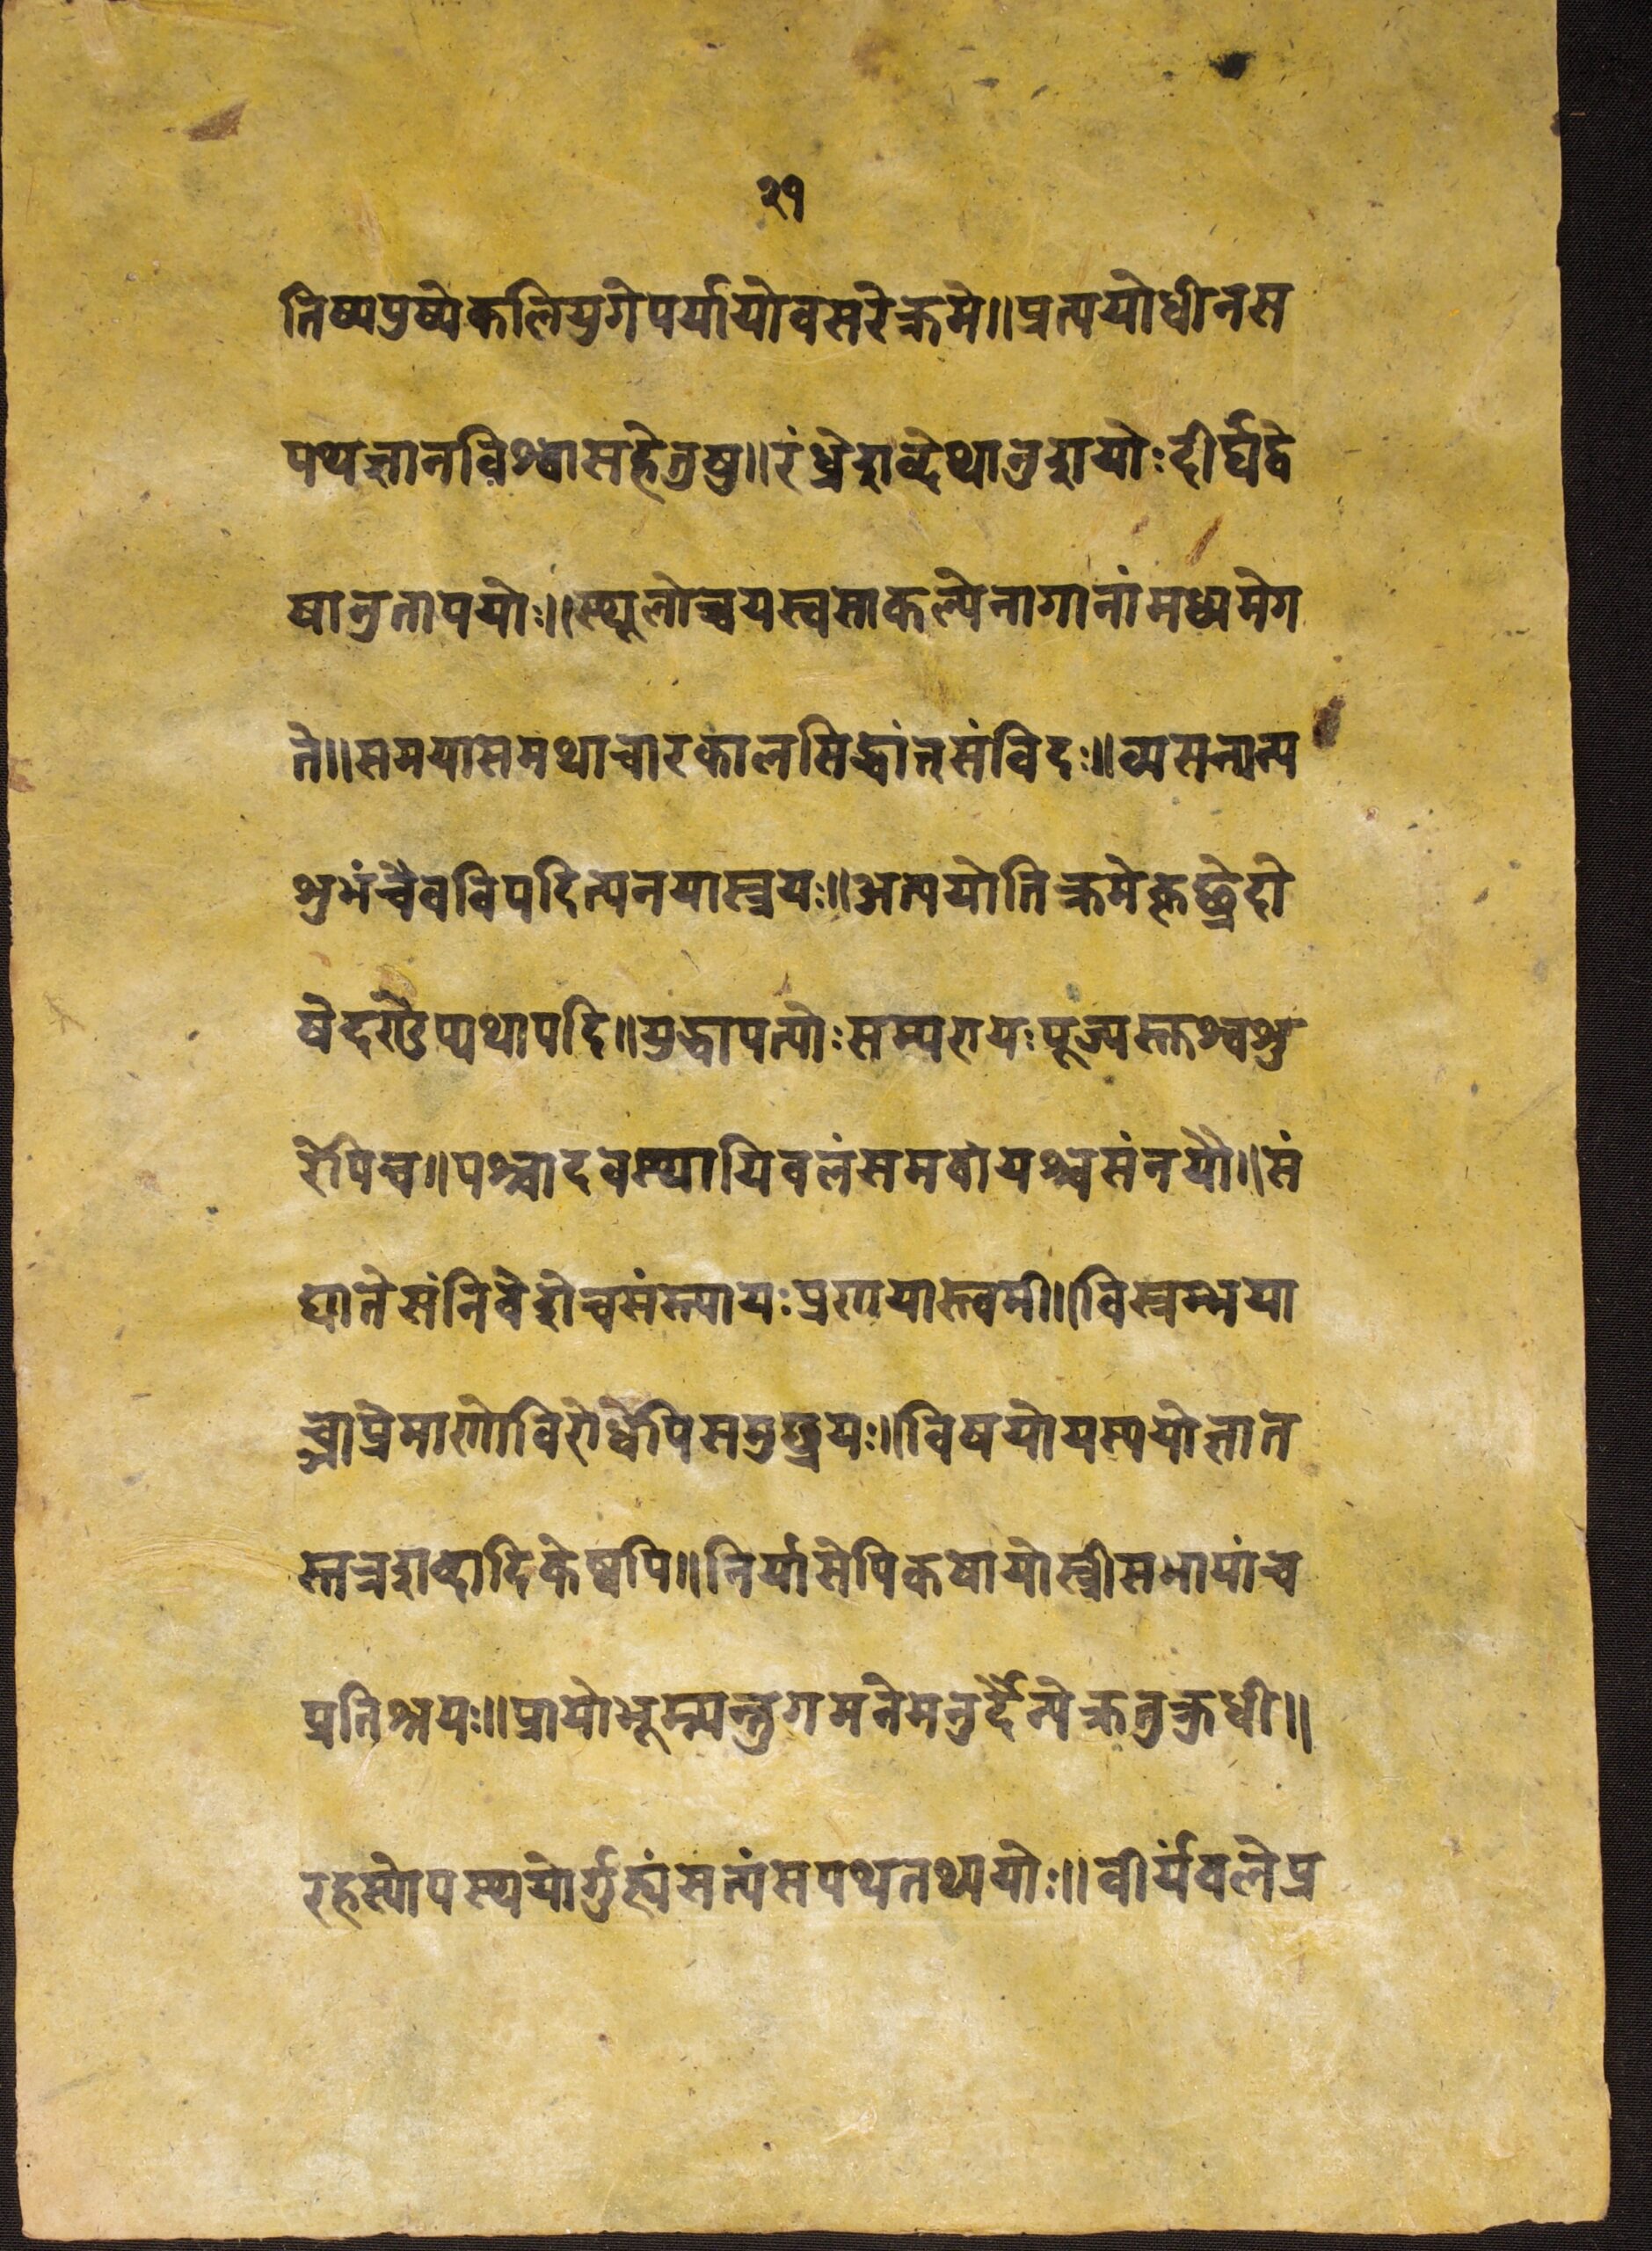 २१
तिष्यपुष्येकलियुगेपर्यायोवसरेक्रमे॥प्रत्ययोधीनस
पथज्ञानविश्वासहेतुषु॥रंध्रेशब्देथानुशयोःदीर्घद्वे
षानुतापयोः॥स्थूलोच्चयस्त्वसाकल्येनागानांमध्यमेग
ते॥समयासमथाचारकालसिद्धांतसंविदः॥व्यसनान्य
शुभंचैवविपदित्यनयास्त्रयः॥अत्ययोतिक्रमेकृछ्रेदो
षेदण्डेप्यथापदि॥युद्धापत्योःसम्परायःपूज्यस्तश्वशु
रेपिच॥पश्चादवस्थायिवलंसमवायश्चसंनयौ॥सं
घातेसंनिवेशेचसंस्त्यायःप्रणयास्त्वमी॥विस्त्रम्भया
च्ञाप्रेमाणोविरोधेपिसमुछ्रयः॥विषयोयस्ययोज्ञात
स्तत्रशब्दादिकेष्वपि॥निर्यासेपिकषायोस्त्रीसभायांच
प्रतिश्रयः॥प्रायोभूम्न्यन्तुगमनेमनुर्दैन्येक्रतुक्रुधी॥
रहस्योपस्थयोर्गुह्यंसत्यंसपथतथ्ययोः॥वीर्यंवलेप्र